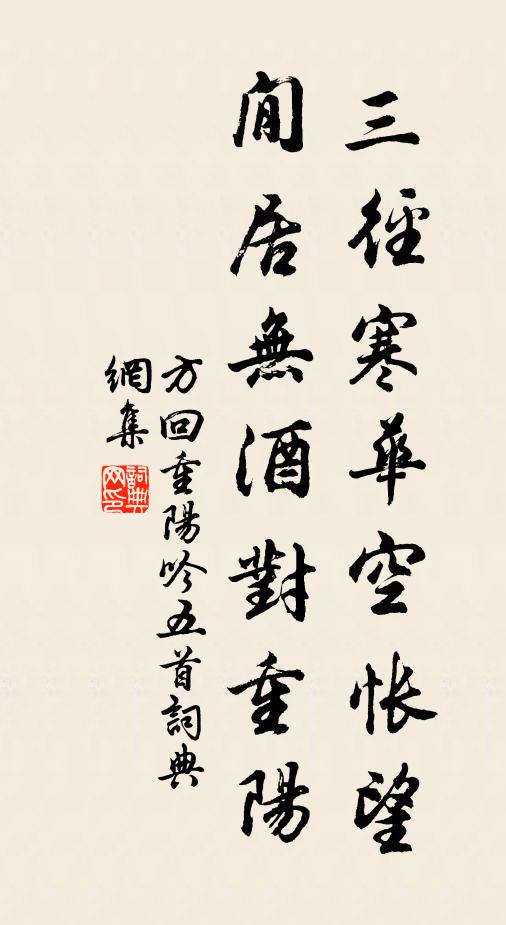 三徑寒華空悵望
閒居無酒對重陽
方回重陽吟五首詞典
網集
詞典
网印